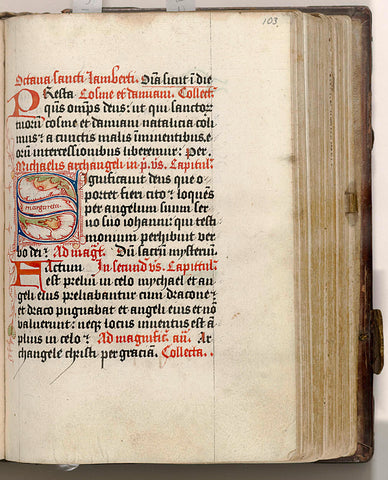 103
Octaua sancti Lamberti. Oīa sicut ī die
PResta Cosme et damiani. Collect
qūs omīps deus: ut qui sanctor
morū cosme et damiani natalicia coli
mus: a cunctis malis īminentibus, e
orū intercessionibus liberemur: Per.
Michaelis archangeli in p. vs. Capitul
SIgnificauit deus que o
portet fieri cito: loquēs
per angelum suum ser
uo suo iohanni: qui testi
monium perhibuit ver
bo dei: Ad magt. Dū sacrū mysteriū.
margareta
FActum In secund vs. Capitul
est preliū in celo mychael et an
geli eius preliabantur cum dracone:
et draco pugnabat et angeli eius et nō
valuerunt: neqz locus inuentus est ā
plius in celo: Ad magnific. añ. Ar
changele christi per graciā. Collecta.